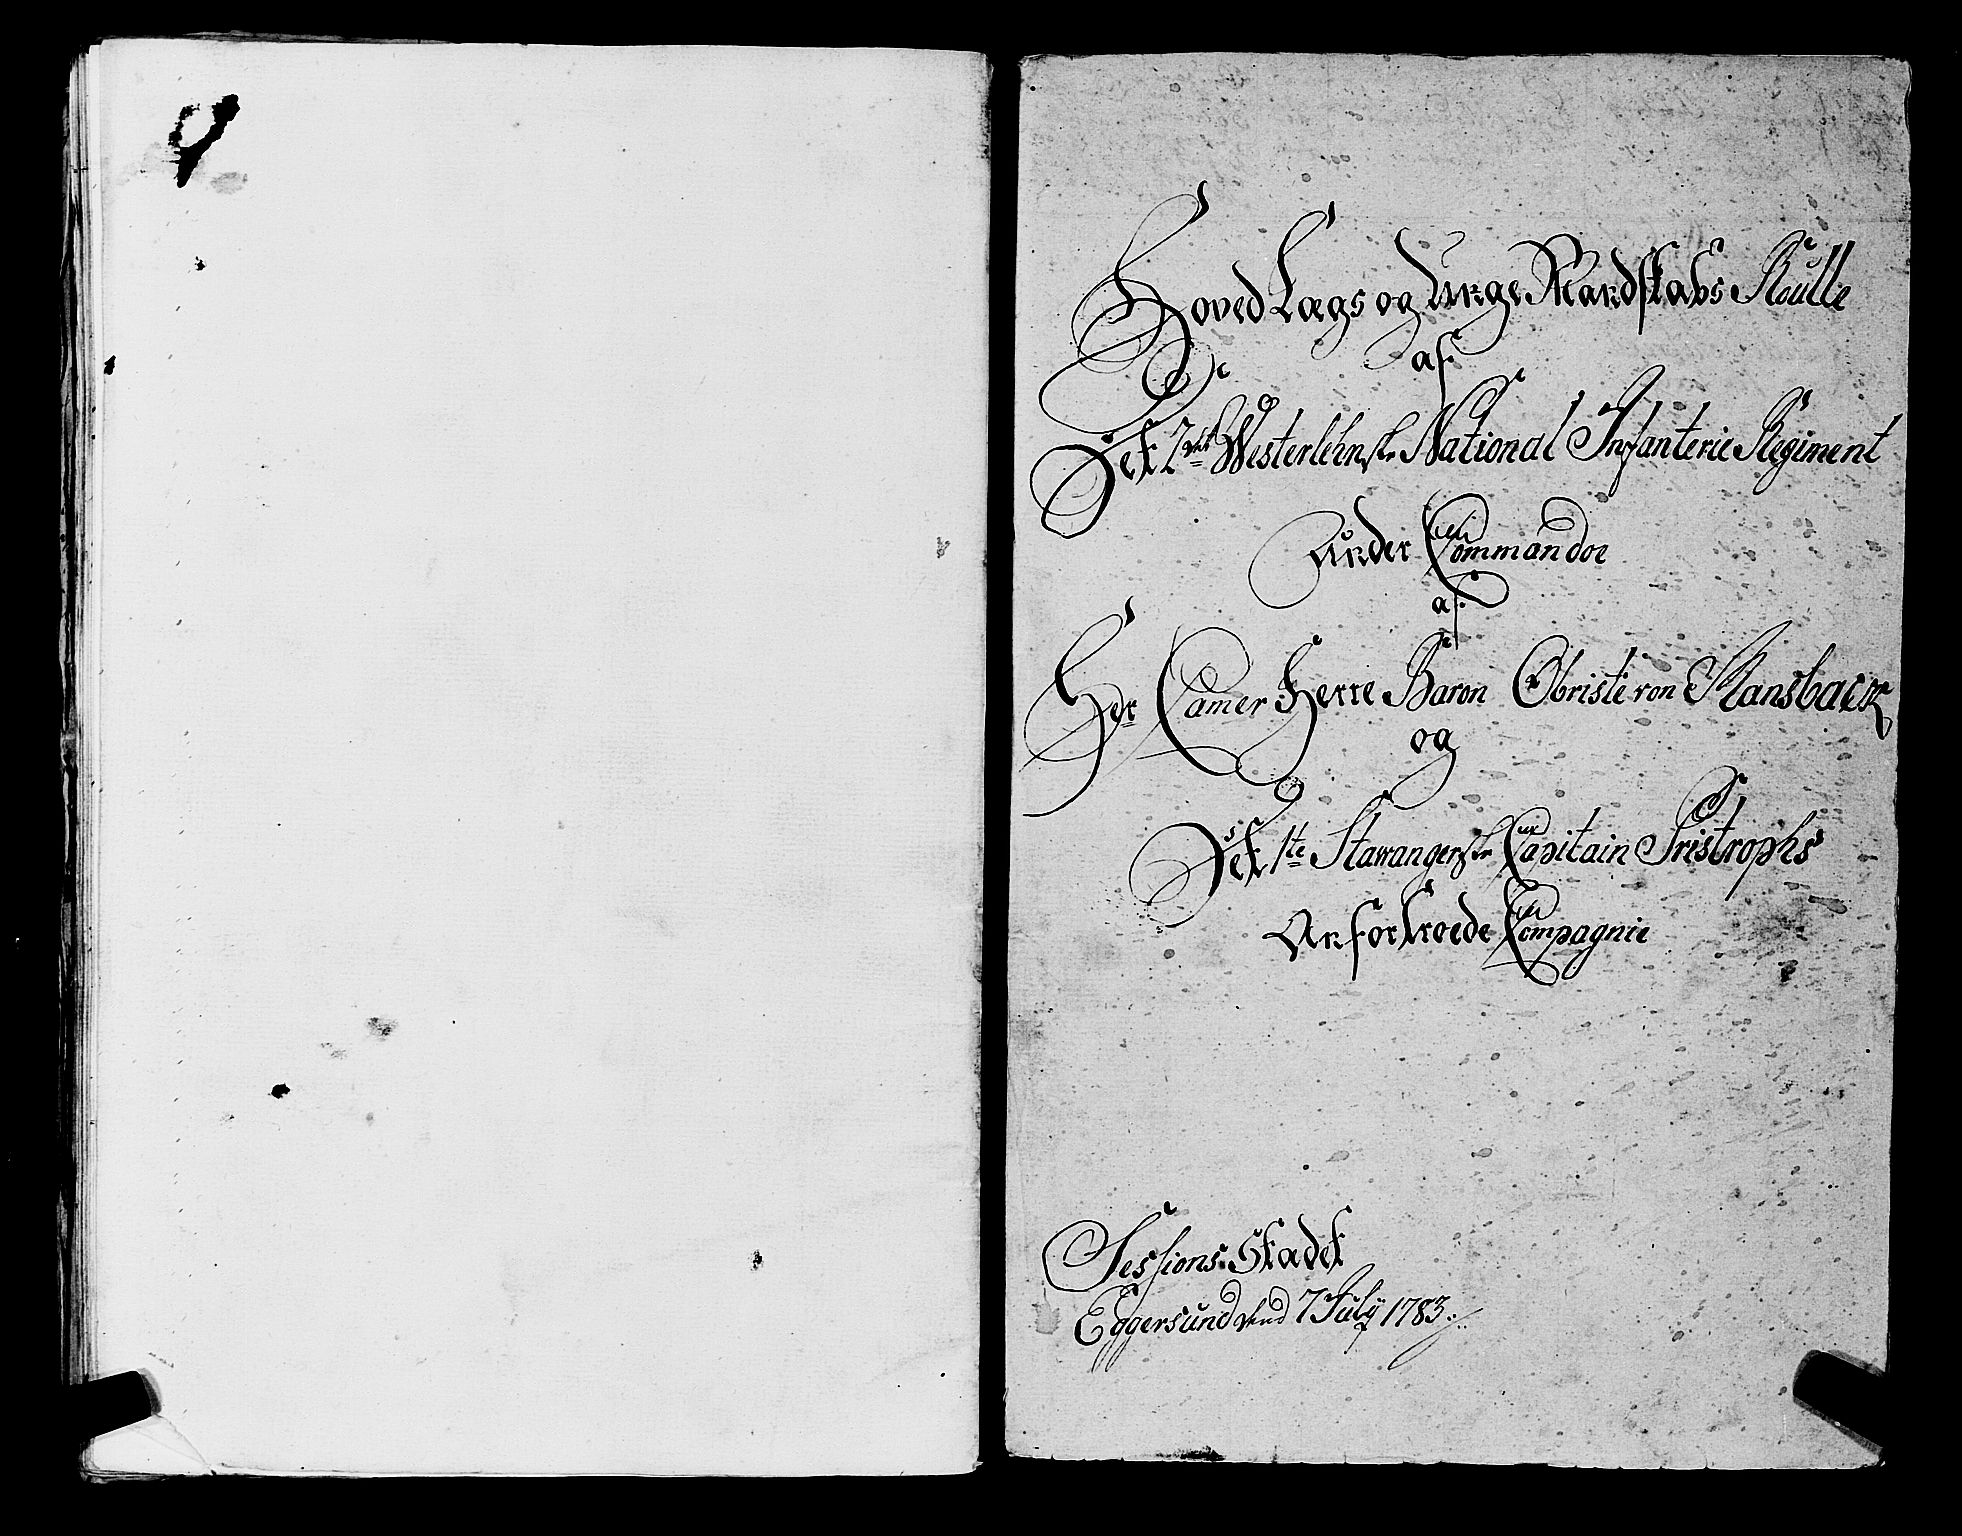 Hoved Lægs og Unge Mandskabs Roulle
af
Det 2det Westerlehnske National Infanterie Regiment
Under Commandoe
af
Her Camer Herre Baron Obriste von Mansback
og
Det 1te Stawangerske Capitain Tristrophs
Anfortroede Compagnie
Sessions Stædet
Eggersund dend 7 July 1783